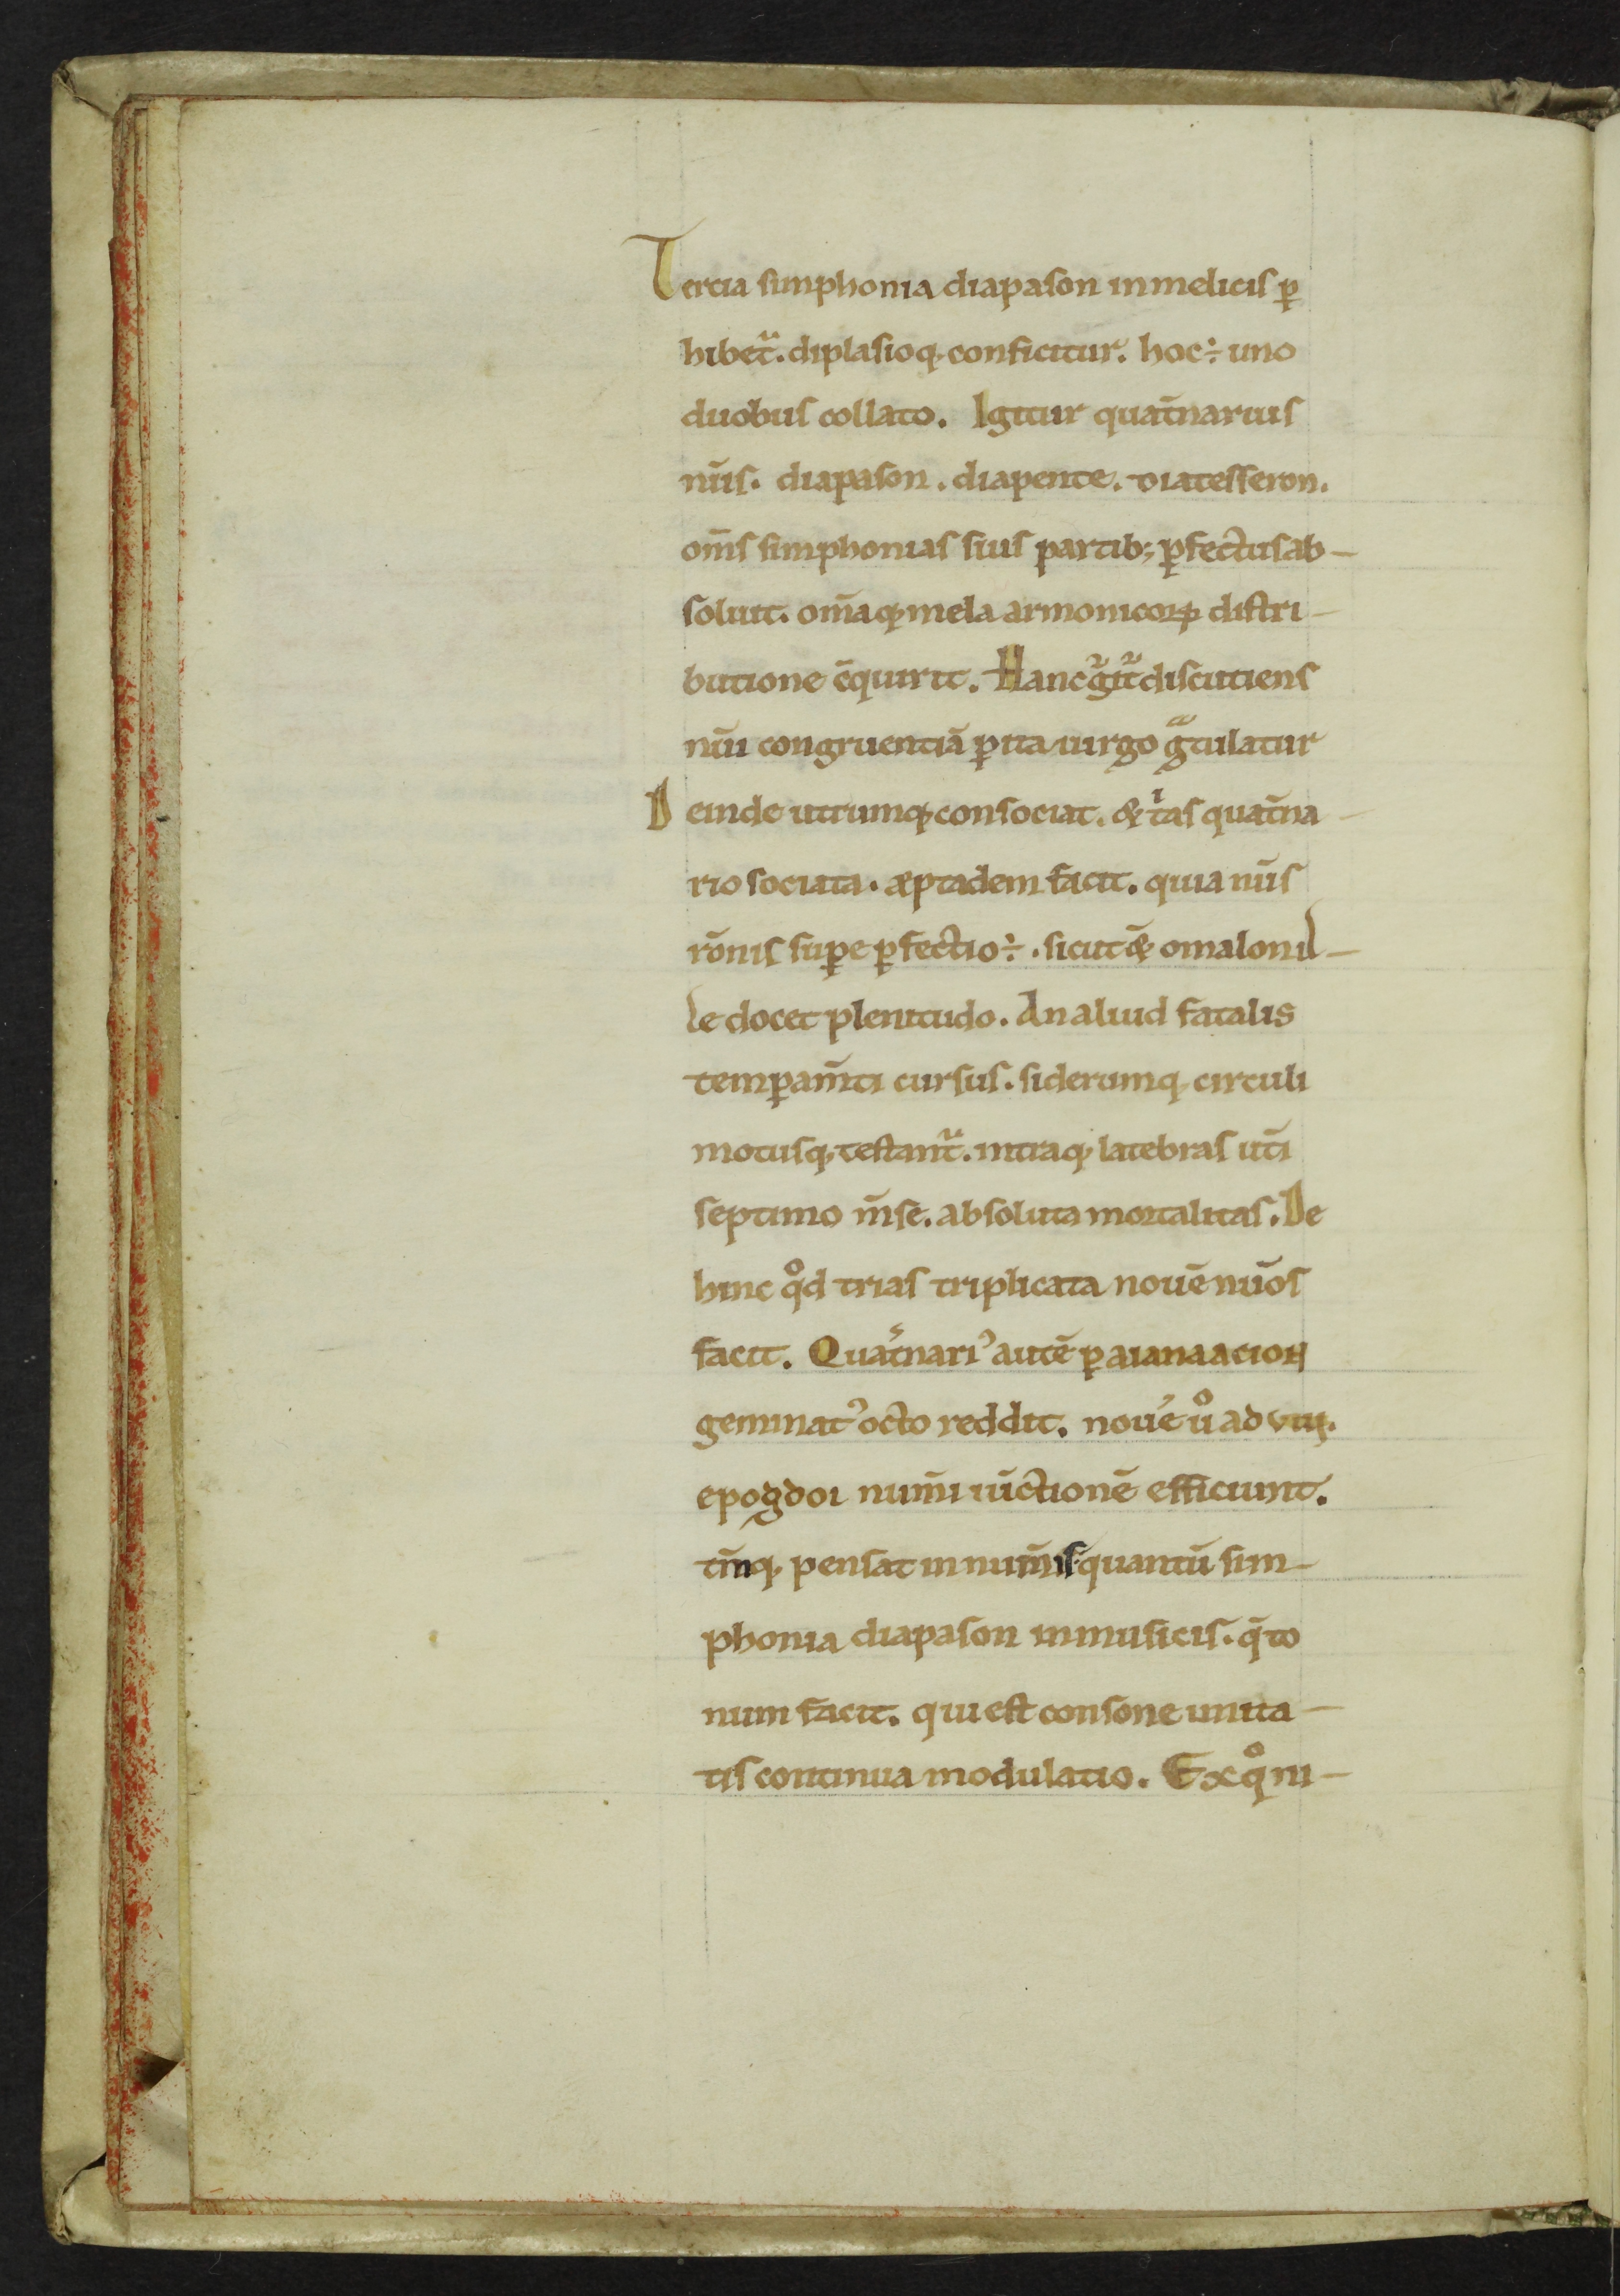 Tercia simphonia diapason in melicis ꝑ
hibet᷑. diplasioq; conficitur. hoc ÷ uno
duobus collato. Igitur quat̄narius
nūs. diapason. diapente. diatesseron.
om̄s simphonias suis partib; ꝑfectus ab-
soluit. om̄aq; mela armonicoꝝ distri-
butione c̄quirit. Hanc g̃ it᷑ discutiens
nūi congruentiā ꝑita uirgo gᵃtulatur
Deinde utrumq; consociat. & tⁱas quat̄na-
rio sociata. æptadem facit. quia nūs
rōnis supe ꝑfectio ÷. sicut & omalon il-
le docet plenitudo. An aliud fatalis
temꝑam̄ti cursus. siderumq; circuli
motusq; testant᷑. intraq; latebras ut̄i
septimo m̄se. absoluta mortalitas. De
hinc qͦd trias triplicata nouē nūos
facit. Quat̄nariꝰ autē ꝑ aianaacion
geminatꝰ octo reddit. nouē uͦ ad viii.
epogdoi num̄i iūctionē efficiunt.
tm̄q; pensat in num̄is. quantū sim-
phonia diapason in musicis. q̄ to
num facit. qui est consone unita-
tis continua modulatio. Ex qͦ ni-